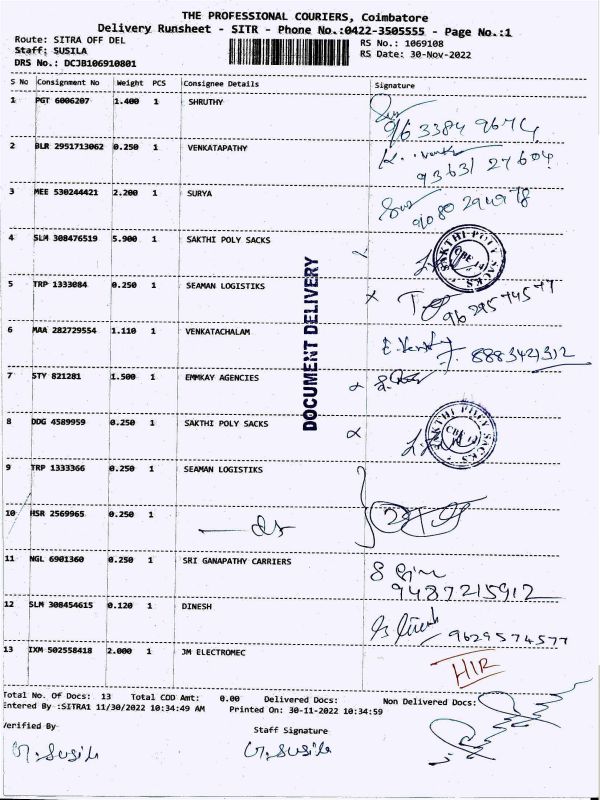 THE PROFESSIONAL COURIERS, Coimbatore
Delivery Runsheet - SITR - Phone No.:0422-3505555 - Page No.:1
Route: SITRA OFF DEL
RS No.: 1069108
Staff: SUSILA
RS Date: 30-Nov-2022
DRS No.: DCJB106910801
S No Consignment No Weight PCS Consignee Details Signature
1 PGT 6006207 1.400 1 SHRUTHY
96 3384 9674
2 BLR 2951713062 0.250 1 VENKATAPATHY
93631 27604
3 MEE 530244421 2.200 1 SURYA
9080294978
4 SLM 308476519 5.900 1 SAKTHI POLY SACKS
SAKTHI POLY SACKS
5 TRP 1333084 0.250 1 SEAMAN LOGISTIKS
6 MAA 282729554 1.110 1 VENKATACHALAM
8883421312
7 STY 821281 1.500 1 EMMKAY AGENCIES
8 DDG 4589959 0.250 1 SAKTHI POLY SACKS
SAKTHI POLY SACKS
DOCUMENT DELIVERY
9 TRP 1333366 0.250 1 SEAMAN LOGISTIKS
10 HSR 2569965 0.250 1
11 NGL 6901360 0.250 1 SRI GANAPATHY CARRIERS
9487215912
12 SLM 308454615 0.120 1 DINESH
9629574577
13 IXM 502558418 2.000 1 JM ELECTROMEC
HIR
Total No. Of Docs: 13 Total COD Amt: 0.00 Delivered Docs: Non Delivered Docs:
Entered By :SITRA1 11/30/2022 10:34:49 AM Printed On: 30-11-2022 10:34:59
Verified By Staff Signature
G. Susila G. Susila